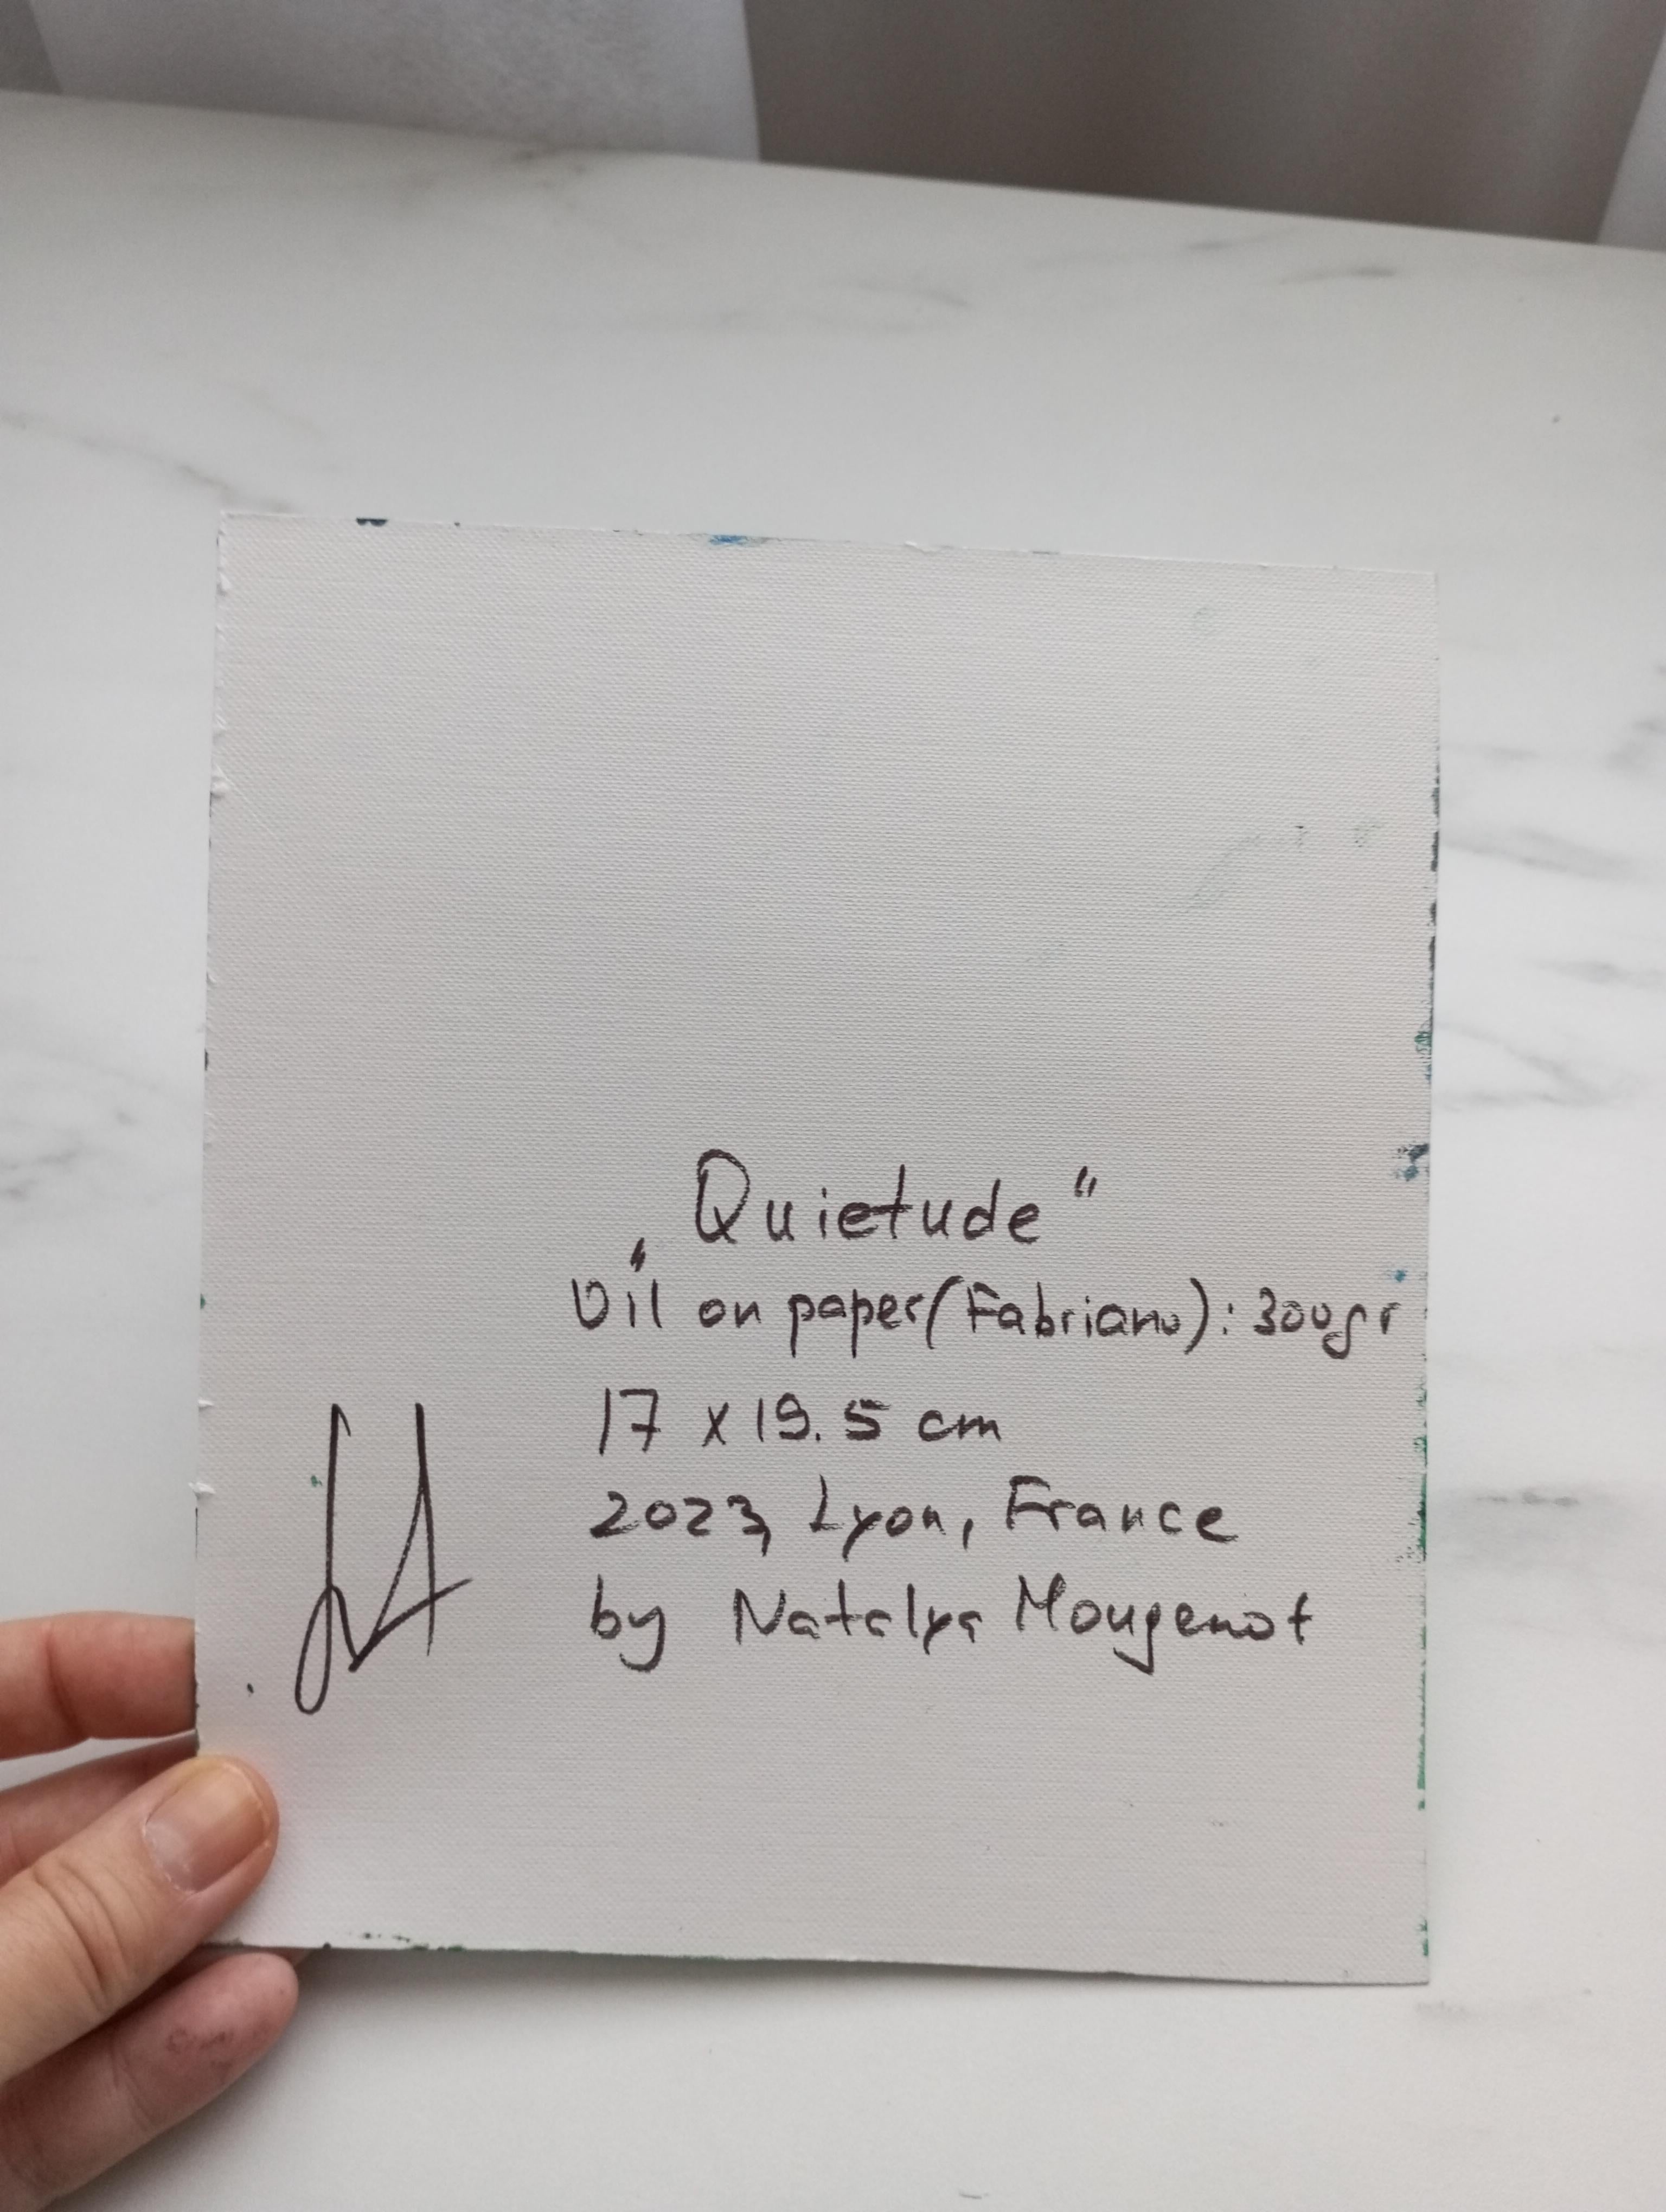 „Quietude“
Oil on paper (Fabriano): 300gr
17 x 19.5 cm
2023, Lyon, France
by Natalya Mougenot